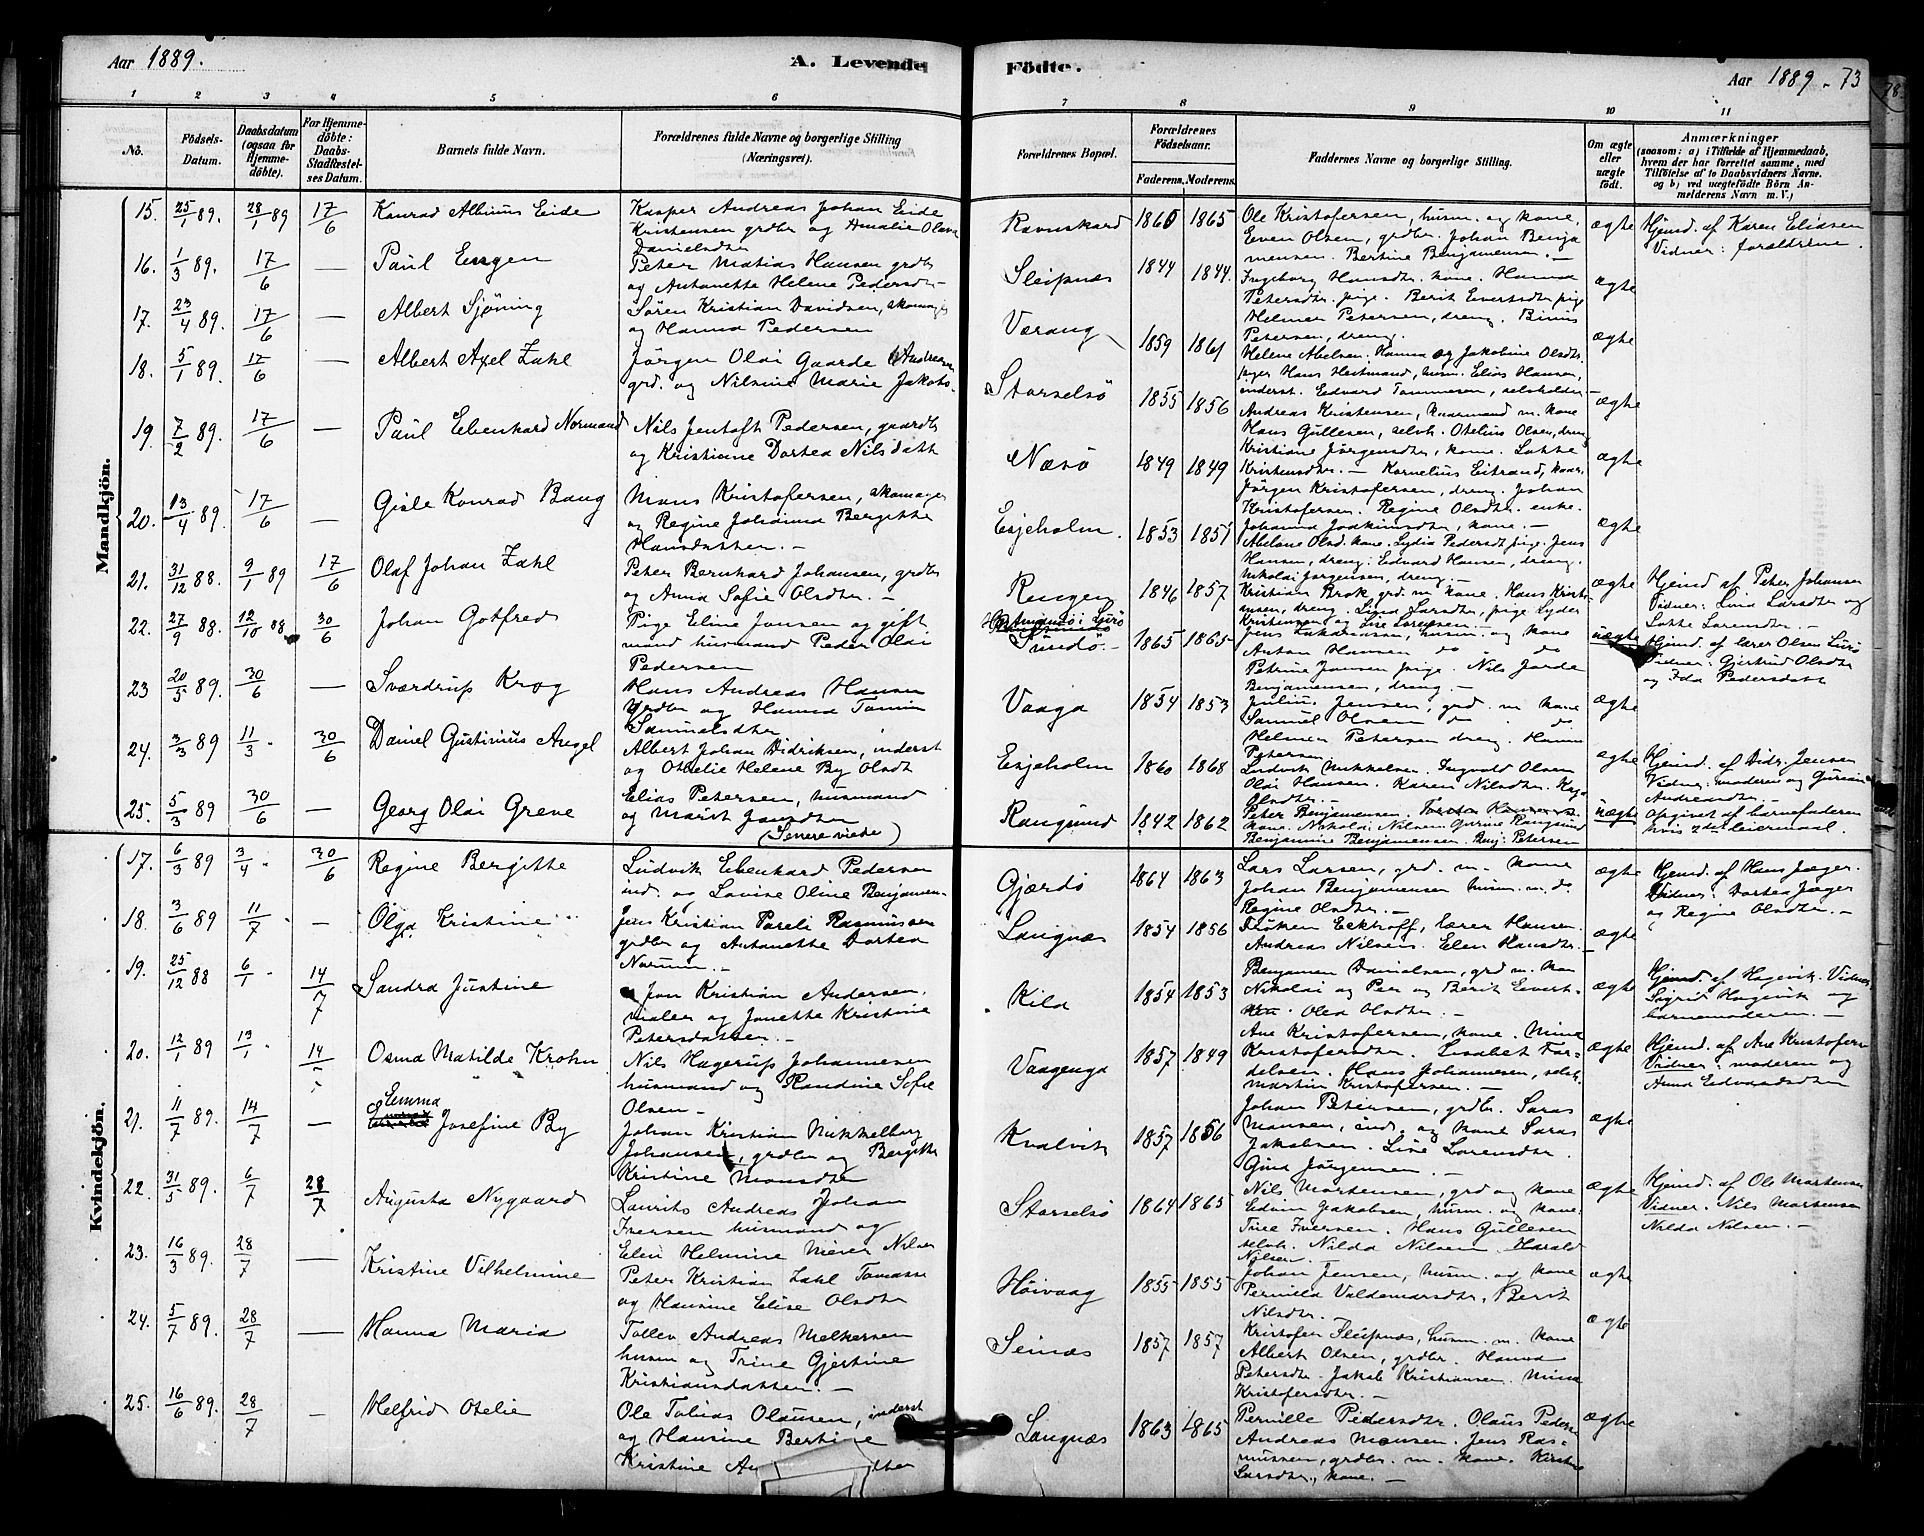 Aar 1889.
A. Levende Födte.
Aar 1889. 73
1 2 3 4 5 6 7 8 9 10 11
No.
Födsels-Datum.
Daabsdatum (ogsaa for Hjemme-döbte).
For Hjemme-döbte: Daabs-Stadfæstelses Datum.
Barnets fulde Navn.
Forældrenes fulde Navne og borgerlige Stilling (Næringsvei).
Forældrenes Bopæl.
Forældrenes Födselsaar.
Faderens. Moderens.
Faddernes Navne og borgerlige Stilling.
Om ægte eller uægte födt.
Anmærkninger
(saasom: a) i Tilfælde af Hjemmedaab,
hvem der har forrettet samme, med
Tilföielse af to Daabsvidners Navne.
og b) ved uægtefödte Börn An-
melderens Navn m. V.)
Mandkjön.
15. 25/1 89. 28/1 89 17/6 Konrad Albinus Eide
Kasper Andreas Johan Eide
Kristensen grdbr og Amalie Olava
Danielsdtr
Ravnskard 1860 1865
Ole Kristofersen, husm. og kone,
Even Olsen, grdbr. Johan Benja
mensen. Bertine Benjamensen. —
ægte
Hjemd. af Karen Eliasen
Vidner: forældrene.
16. 1/3 89. 17/6 — Paul Engen
Peter Matias Hansen grdbr
og Antonette Helene Pedersdtr
Sleipnæs 1844 1844.
Ingeborg Hansdtr. kone. Hanna
Petersdtr. pige. Berit Evertsdtr pige
Helmer Petersen, dreng.
Petersen, dreng.
ægte
17. 23/4 89. 17/6 — Albert Sjöning
Sören Kristian Davidsen, skomager
og Hanna Pedersen
Værang 1859 1861
Helene Abelsen. Hanna og Jakobine Olsdtr.
piger Hans Hestmand, husm. Elias Hansen,
inderst. Edvard Tommesen, selvholder
ægte
18. 5/1 89. 17/6 — Albert Axel Zahl
Jörgen Olai Gaarde Andreasen
grd. og Nilsine Marie Jakobs-
Storselsö 1855 1856
Andreas Kristensen, kaarmand m. kone
Hans Gullesen, selvh. Otelius Olsen, dreng
ægte
19. 7/2 89. 17/6 — Paul Ebenhard Normand
Nils Jentoft Pedersen, gaardbr
og Kristiane Dortea Nilsdatt
Næsö 1849 1849
Kristiane Jörgensdtr, kone. Lotte
Kristensdtr. — Kornelius Eitrand, kaar.
Jörgen Kristofersen, dreng. Johan
Kristofersen. Regine Olsdtr. enke.
ægte
20. 13/4 89. 17/6 — Gisle Konrad Bang
Mons Kristofersen, skomager
og Regine Johanna Bergitte
Hansdatter. —
Esjeholm. 1853 1851
Johanna Joakimsdtr, kone. —
Abelone Olsd. kone. Lydia Pedersdt pige. Jens
Hansen, dreng. Edvard Hansen, dreng.
Nikolai Jörgensen, dreng. —
ægte
21. 31/12 88. 9/1 89 17/6 Olaf Johan Zahl
Peter Bernhard Johansen, grdbr
og Anna Sofie Olsdtr. —
Rengen 1846 1857
Kristian Krok grd. m kone. Hans Krist-
ensen, dreng. Lina Larsdtr, pige Lyder
Kristensen og Lise Lorensen. —
ægte
Hjemd af Peter Johansen
Vidner: Lina Larsdtr og
Lotte Lorensdtr. —
22. 27/9 88. 12/10 88 30/6 Johan Gotfred
Pige Eline Jonsen og gift
mand husmand Peder Olai
Pedersen
Sundö. 1865 1865
Jens Zakariassen, husm. og kone
Anton Hansen do do
Petrine Jonsen pige. Nils Jorde
Benjamensen, dreng. —
uægte
Hjemd. af lærer Olsen Lurö
Vidner: Gjertrud Olsdtr
og Ida Pedersdatt
23 20/5 89. 30/6 — Sværdrup Krog
Hans Andreas Hansen
grdbr og Hanna Tomin
Samuelsdtr
Vaaga 1854 1853
Julius Jensen, grd. m. kone
Samuel Olsen do do
Helmer Petersen dreng.
Petersen
ægte
24. 3/3 89 11/3. 30/6 Daniel Gustinius Angel
Albert Johan Didriksen, inderst
og Othelie Helene By Olsdt
Esjeholm 1860 1868
Ludvik Mikkelsen. Ingvald Olsen
Olai Hansen. Karen Nilsdtr.
Olsdtr. —
ægte
Hjemd. af Didr. Jensen
Vidner: moderen og
Andreasdtr. —
25. 5/3 89 30/6 — Georg Olai Greve
Elias Petersen, husmand
og Marit Jonsdtr
(Senere viede)
Rangsund 1842 1862
Peter Benjamensen
kone. Nikolai Nilsen Gurine Rangsund
Benjamine Benjamensen. Benj. Petersen
uægte
Opgivet af barnefaderen
hvis 2det leiermaal.
Kvindekjön.
17. 6/3 89 3/4. 30/6 Regine Bergitte
Ludvik Ebenhard Pedersen
ind. og Lovise Oline Benjamen-
Gjærdö 1864 1863
Lars Larsen, grd. m. kone
Johan Benjamensen husm. m. do
Regine Olsdtr. —
ægte
Hjemd. af Hans Jæger.
Vidner: Dortea Jæger
og Regine Olsdtr. —
18. 3/6 89 11/7. — Olga Kristine
Jens Kristian Pareli Rasmussen
grdbr og Antonette Dortea
Norum. —
Langnæs 1854 1856
Fröken Eckhoff, lærer Hansen
Andreas Nilsen. Elen Hansdtr.
ægte
19. 25/12 88 6/1 14/7 Sandra Justine
Jon Kristian Andersen,
maler og Jonette Kristine
Petersdatter. —
Kila 1854 1853
Benjamen Danielsen, grd m. kon
Nikolai og Peer og Berit Evert-
Olea Olsdtr. —
ægte
Hjemd. af Hagevik. Vidner
Sigrid Hagevik og
barnemoderen. —
20. 12/1 89 13/1. 14/7 Osma Matilde Krohn
Nils Hagerup Johannesen
husmand og Randine Sofie
Olsen —
Vaagenga 1857 1849
Ane Kristofersen, kone. Mina
Kristofersdtr. Lisabet Tor-
delsen. Hans Johannesen, selvh.
Martin Kristofersen. —
ægte
Hjemd. af Ane Kristofersen
Vidner: moderen og
Anna Edvardsdtr
21. 11/7 89. 14/7 — Emma Josefine By
Johan Kristian Mikkelborg
Johansen, grdbr og Bergitte
Kristine Monsdtr
Kvalvik 1857 1856
Johan Petersen, grdbr. Saras
Monsen, ind. og kone Saras
Jakobsen. Line Lorensdtr.
Gina Jörgensen. —
ægte
22. 31/5 89. 6/7 28/7 Augusta Nygaard
Laurits Andreas Johan
Iversen husmand og
Elen Helmine Meier Nilsen
Storselsö 1864 1865
Nils Mortensen, grd og kone
Edvin Jakobsen, husm. og kone.
Trine Iversen. Hans Gullesen
selvh. Nilda Nilsen. Harald
Nilsen. —
ægte
Hjemd. af Ole Mortensen
Vidner: Nils Mortensen
Nilda Nilsen. —
23. 16/3 89. 28/7 — Kristine Vilhelmine
Peter Kristian Zahl Tomasse
og Hansine Elise Olsdtr
Höivaag 1855 1855
Johan Jensen, husm. og kone
Pernilla Valdemarsdtr, Berit
Nilsdtr. —
ægte
24. 5/7 89. 28/7 — Hanna Maria
Tollev Andreas Melkersen
husm og Trine Gjertine
Kristiansdatter. —
Seinæs 1857 1857
Kristofer Sleipnæs, husm. m. kone
Albert Olsen, grdbr. Hanna
Petersdtr. Jakob Kristiansen. Mina
Kristofersdtr. —
ægte
25. 16/6 89. 28/7 — Helfrid Otelie
Ole Tobias Olausen, inderst
og Hansine Bertine
Kristine
Langnæs 1863 1865
Pernille Pedersdtr. Olaus Peders
Andreas Monsen. Jens Ras-
mussen, grdbr. m. kone. Kirstine
Larsdtr., kone. —
ægte